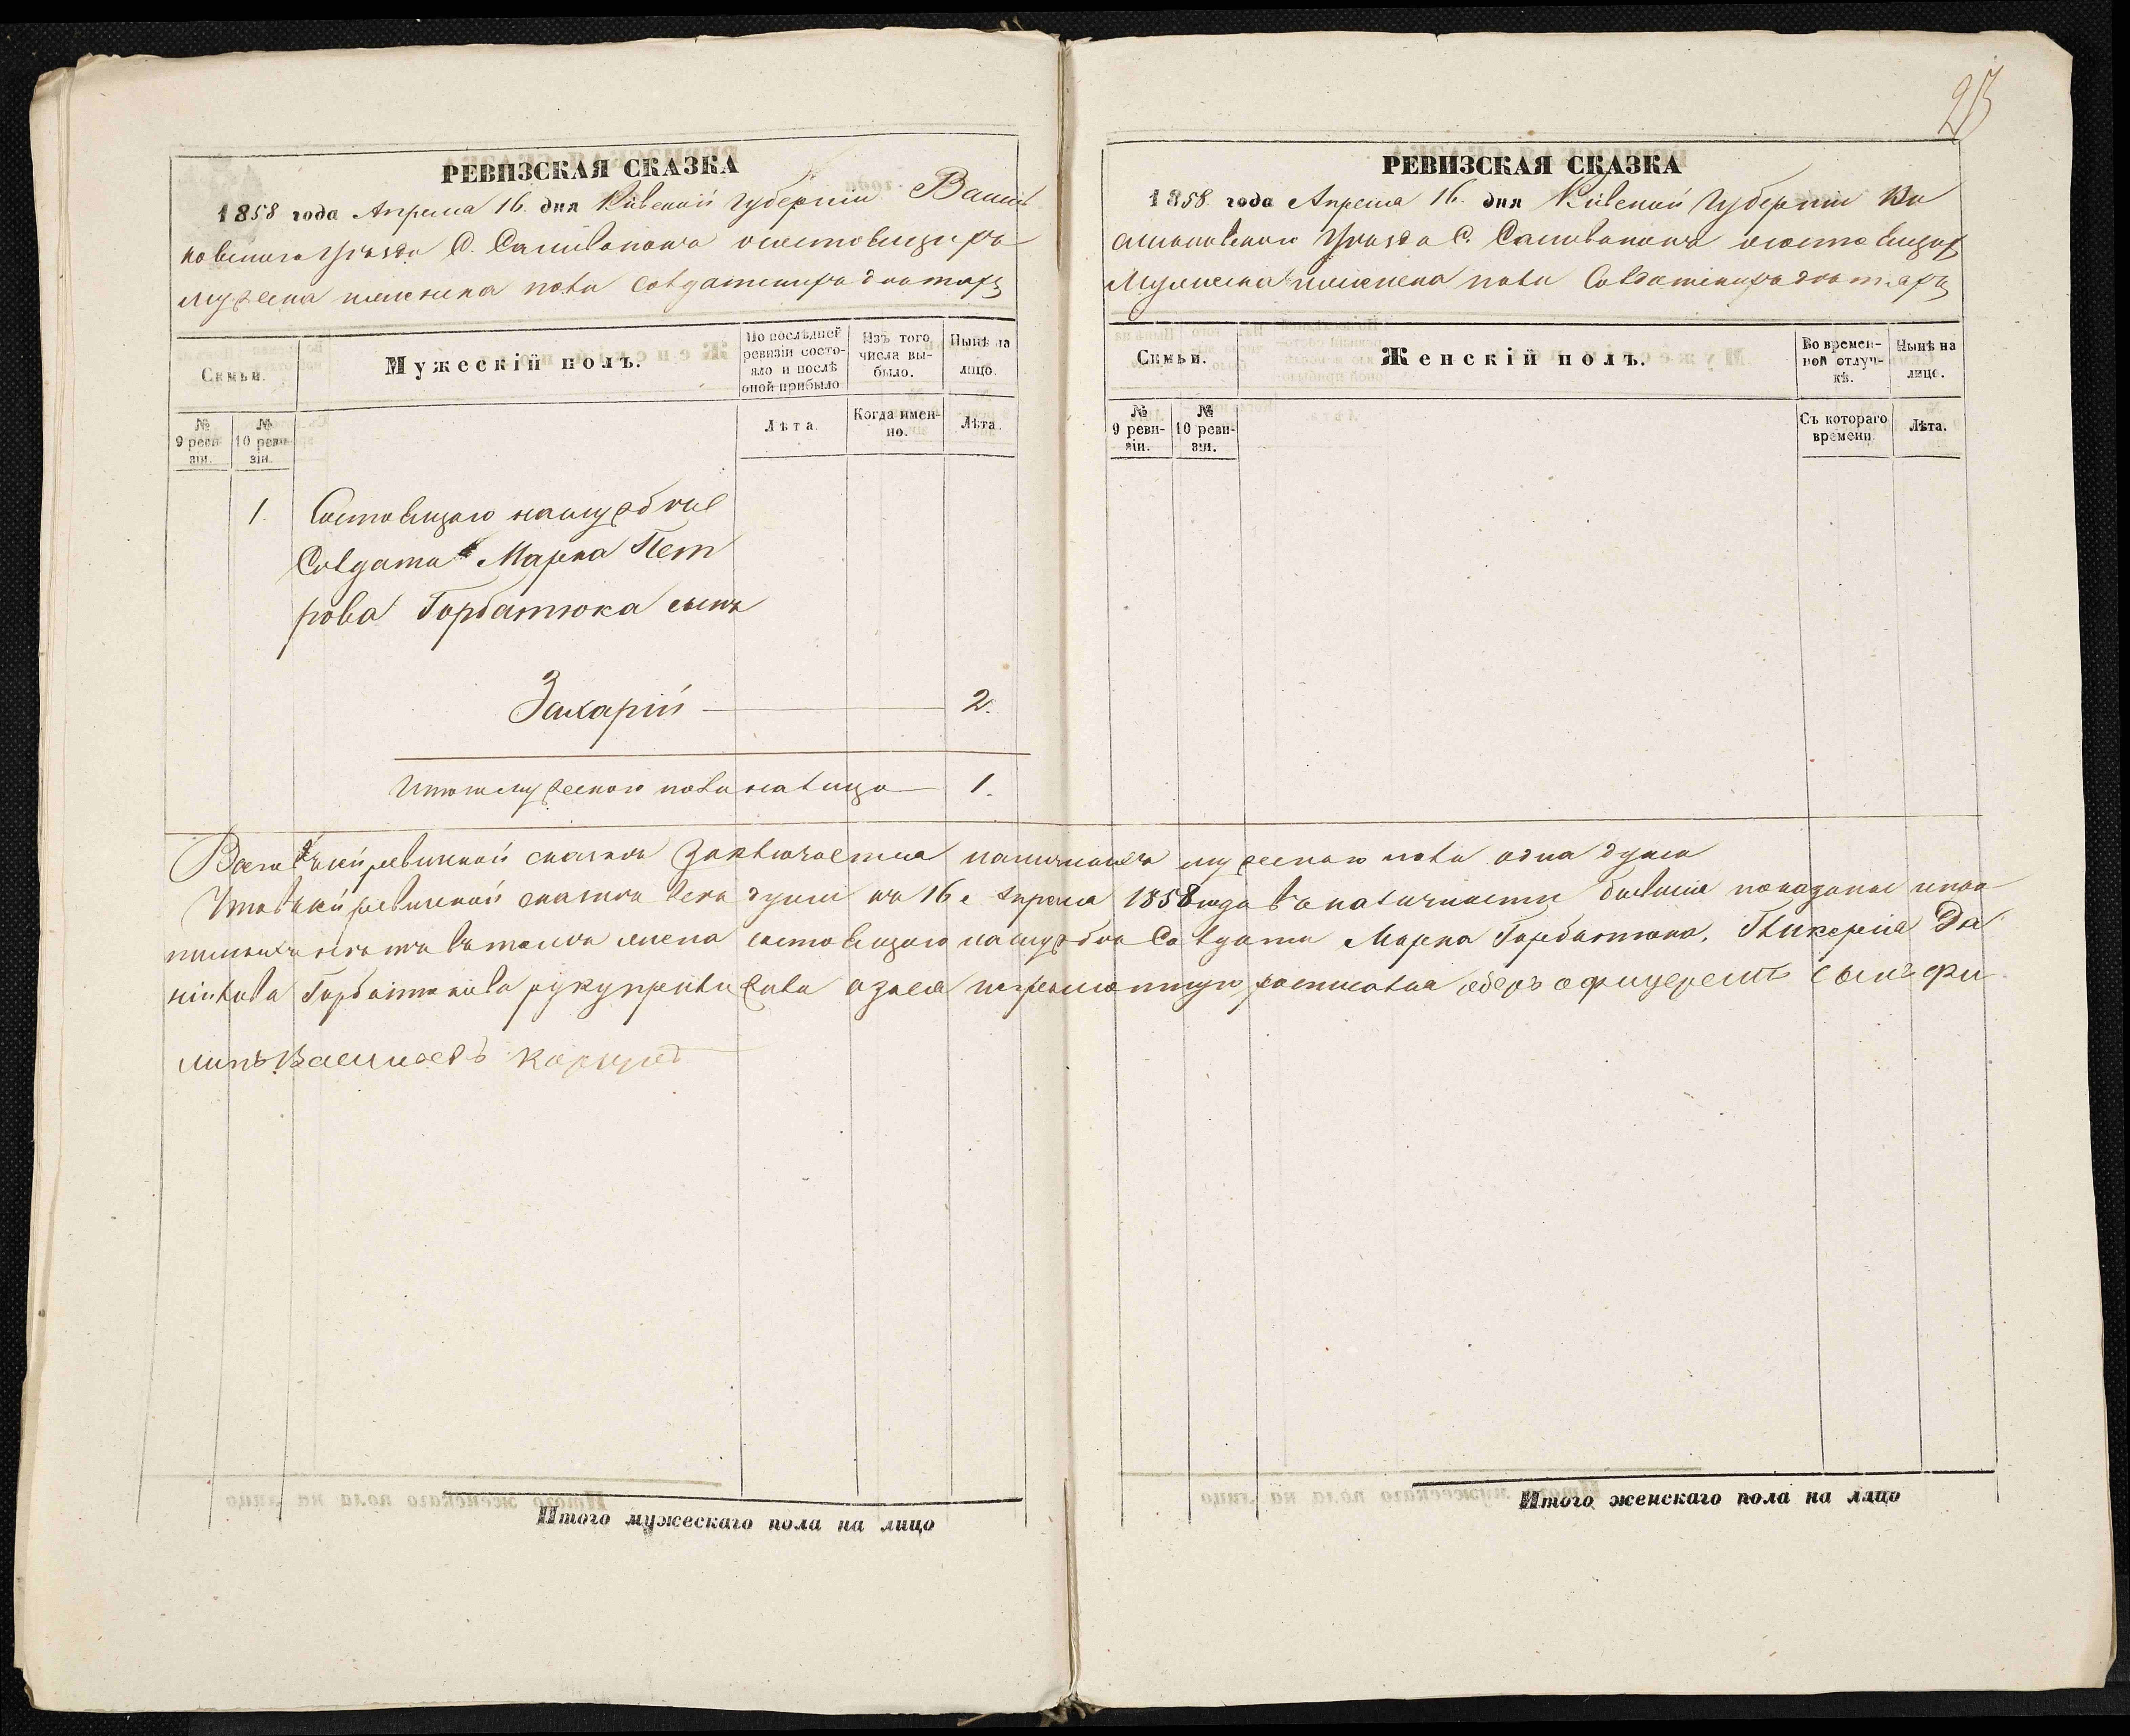 РЕВИЗСКАЯ СКАЗКА
1858 года Апреля 16. дня Кіевской губерніи Василь
ковскаго уѣзда С. Саливонокъ о состоящихъ
мужеска женска пола солдатскихъ дѣтяхъ
Семьи.
Мужескій полъ.
По послѣдней ревизіи состояло и послѣ оной прибыло
Изъ того числа выбыло.
Нынѣ на лицо.
№ 9 ревизіи.
№ 10 ревизіи.
Лѣта.
Когда именно.
Лѣта.
1. Состоящаго на службѣ
Солдата Марка Пет
рова Горбатюка сынъ
Захарій 2.
Итого мужескаго пола на лицо 1.
Итого мужескаго пола на лицо
23
РЕВИЗСКАЯ СКАЗКА
1858 года Апреля 16. дня Кіевской Губерніи Ва
сильковскаго Уѣзда С. Саливонокъ о состоящихъ
Мужеска женска пола Солдатскихъ дѣтяхъ
Семьи.
Женскій полъ.
Во временной отлучкѣ.
Нынѣ на лице.
№ 9 ревизіи.
№ 10 ревизіи.
Съ котораго времени
Лѣта.
Всего въ сей ревизской сказкѣ заключается наличныхъ мужескаго пола одна душа
Что въ сей ревизской сказкѣ всѣ души по 16е Апреля 1858 года въ наличности бывшіе показаны и про
писныхъ нѣтъ въ томъ жена состоящаго на службѣ Солдата Марка Горбатюка, Гликерія Да
нілова Горбатюкова руку приложила а за нея неграмотную росписался оберъ офицерскій сынъ Фи
липъ Васильевъ
Итого женскаго пола на лицо